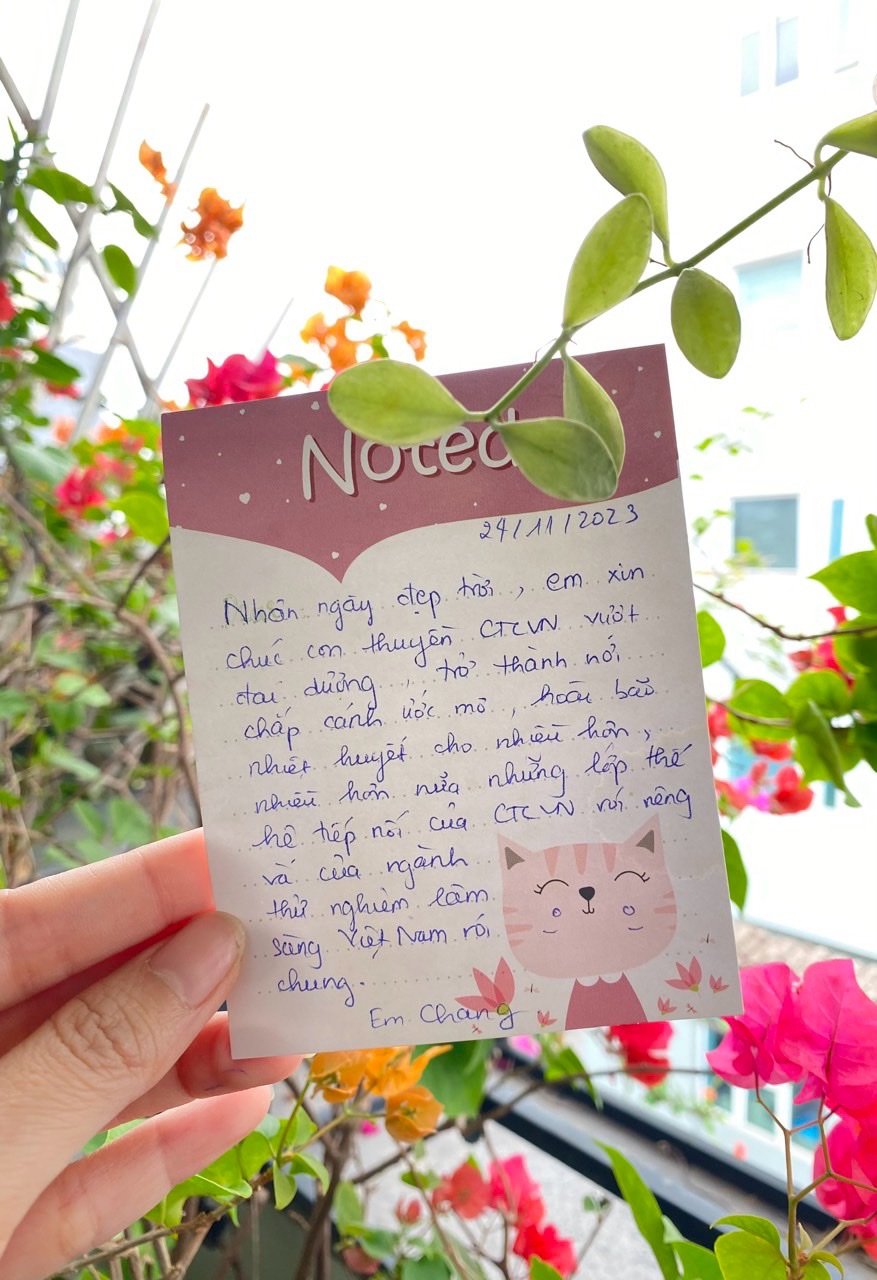 Noted
24/11/2023
Nhân ngày đẹp trời, em xin
chúc con thuyền CTCVN vượt
đại dương, trở thành nơi
chắp cánh ước mơ, hoài bão
nhiệt huyết cho nhiều hơn,
nhiều hơn nữa những lớp thế
hệ tiếp nối của CTCVN nói riêng
và của ngành
thử nghiệm lâm
sàng Việt Nam nói
chung.
Em Chang